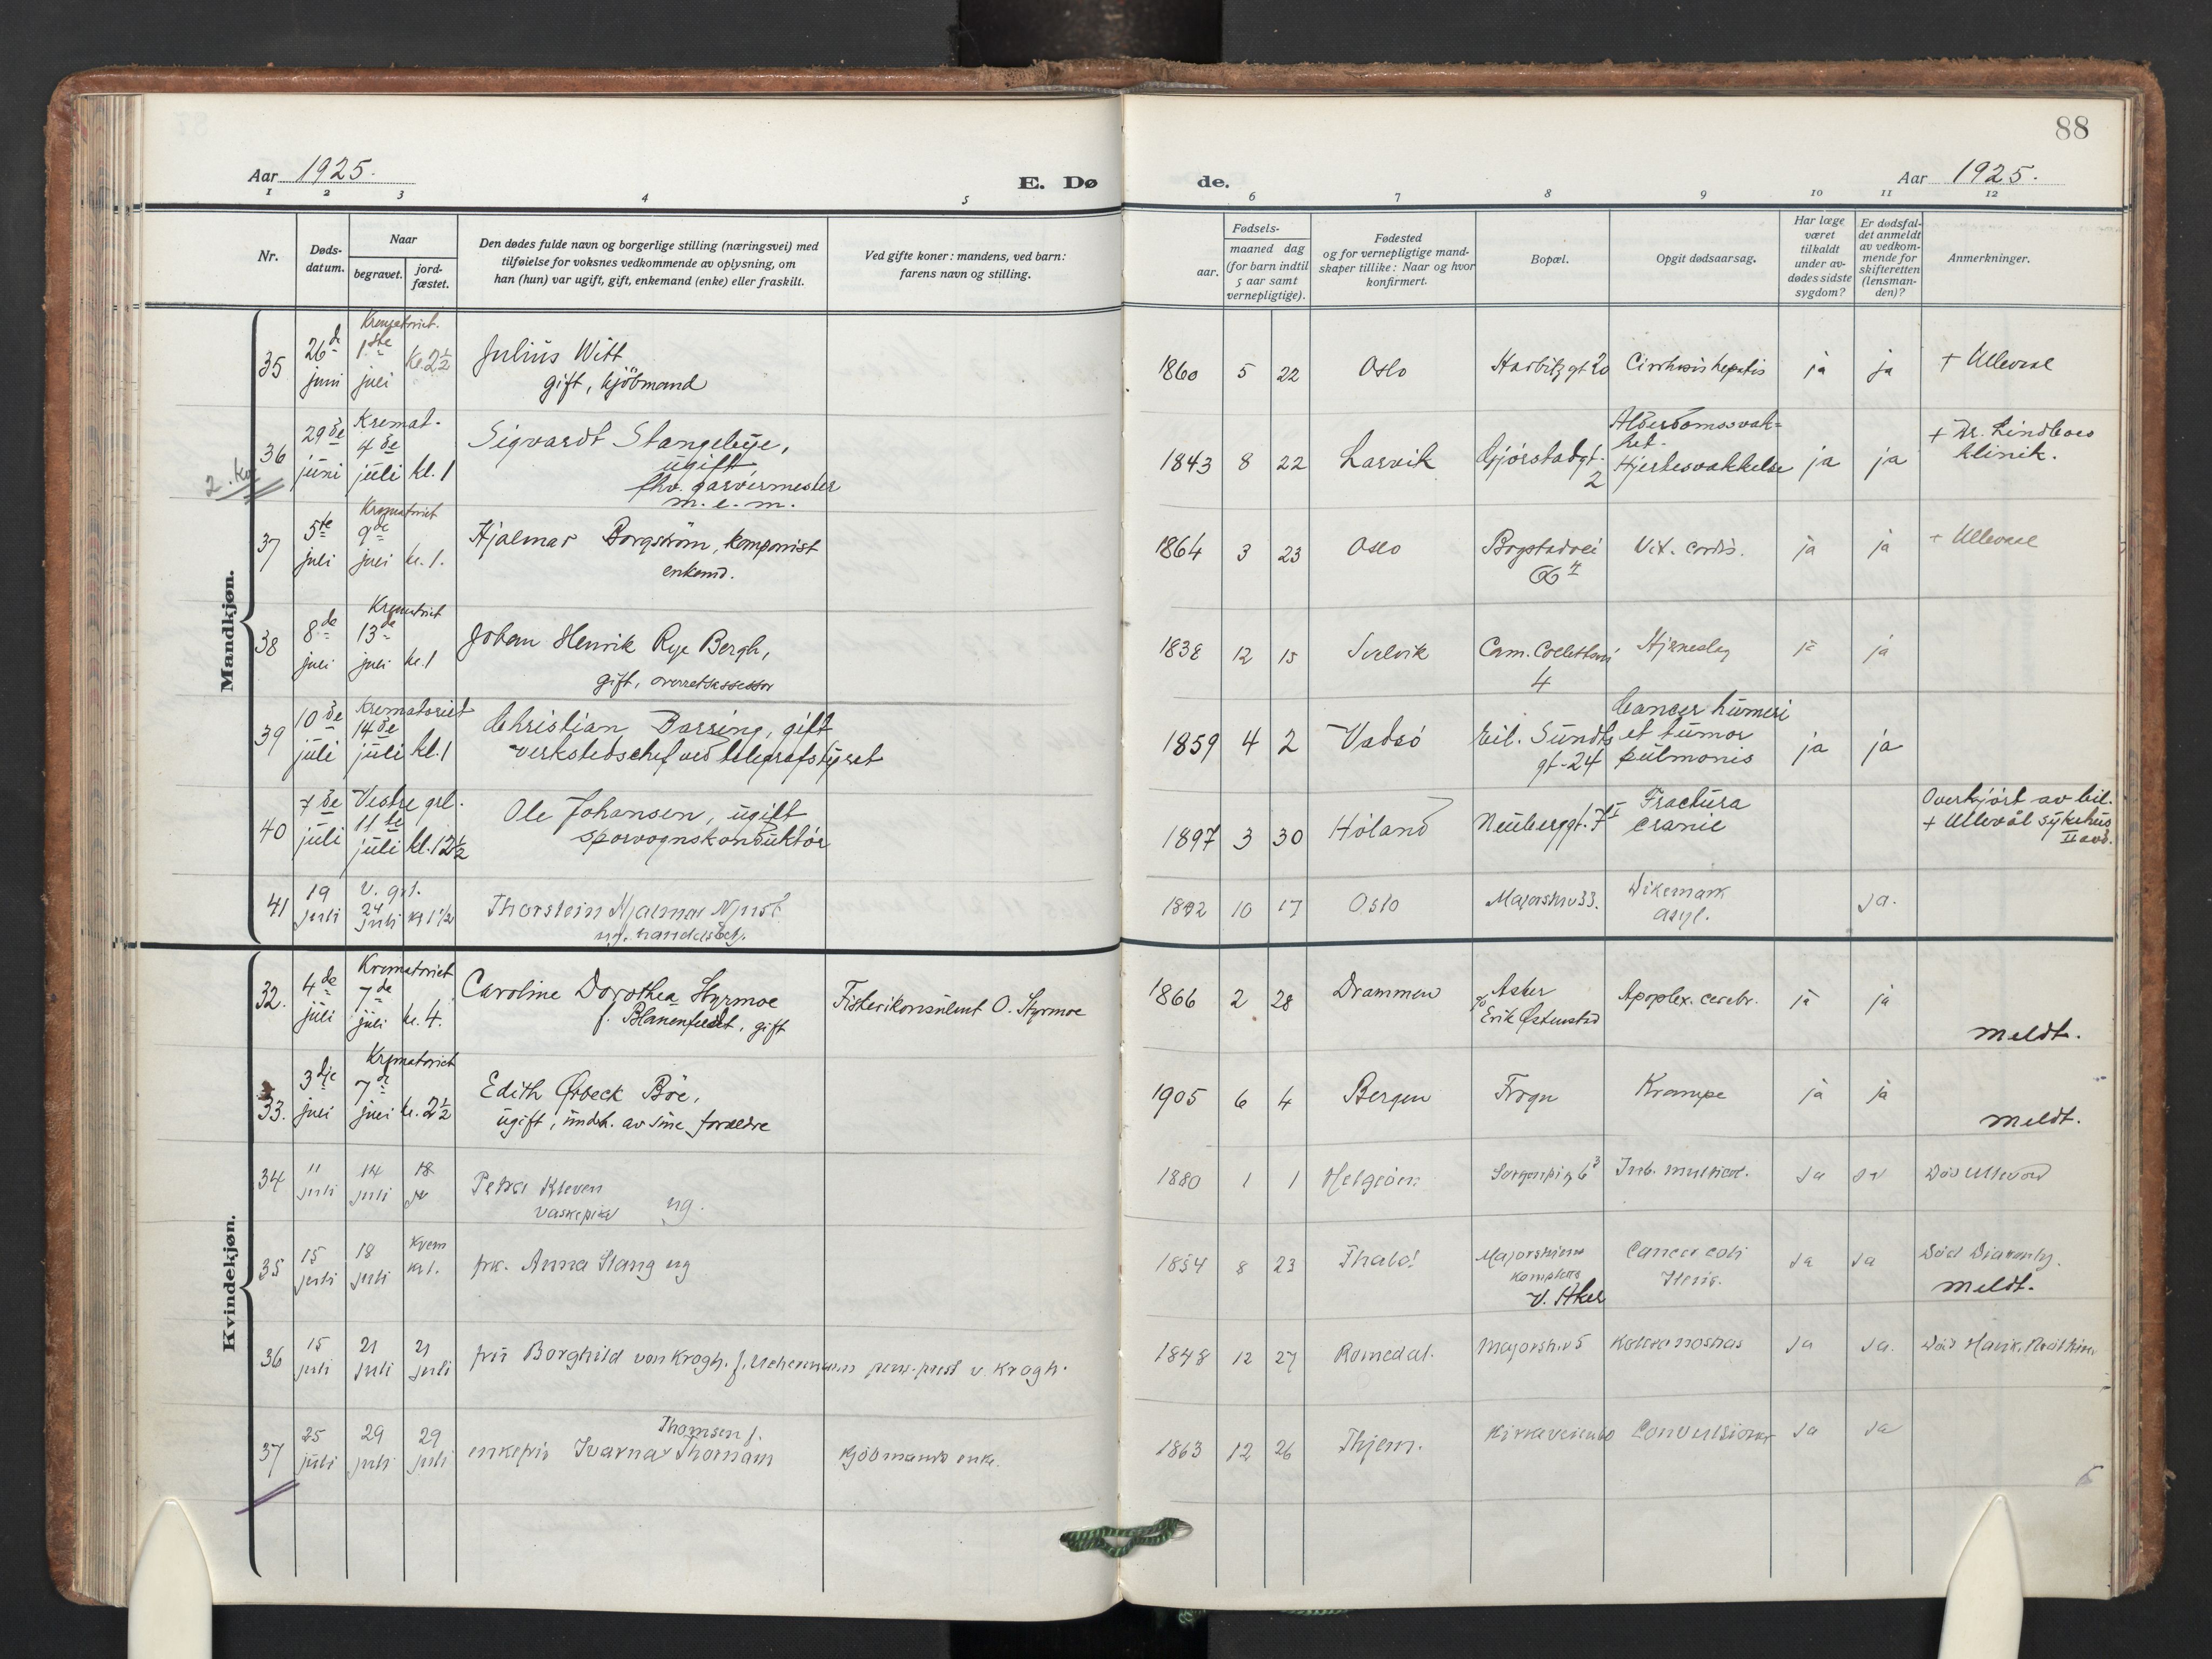 88
Aar 1925.
E. Dø
de.
Aar 1925.
1 2 3 4 5 6 7 8 9 10 11 12
Nr.
Døds-
datum.
Naar
begravet.
jord-
fæstet.
Den dødes fulde navn og borgerlige stilling (næringsvei) med
tilføielse for voksnes vedkommende av oplysning, om
han (hun) var ugift, gift, enkemand (enke) eller fraskilt.
Ved gifte koner: mandens, ved barn:
farens navn og stilling.
Fødsels-
aar.
maaned dag
(for barn indtil
5 aar samt
vernepligtige).
Fødested
og for vernepligtige mand-
skaper tillike: Naar og hvor
konfirmert.
Bopæl.
Opgit dødsaarsag.
Har læge
været
tilkaldt
under av-
dødes sidste
sygdom?
Er dødsfal-
det anmeldt
av vedkom-
mende for
skifteretten
(lensman-
den)?
Anmerkninger.
Mandkjøn.
Krematoriet.
35 26de 1ste kl. 2½ Julius Witt 1860 5 22 Oslo Harbitzgt 20 Cirrhosis hepatis ja ja + Ullevaal
juni juli gift, kjöbmand
36 29de Kremat. 4de Sigvardt Stangebye, 1843 8 22 Larvik Gjörstadgt. 2 Alderdomssvak=
het. Hjertesvakkelse ja ja + Dr. Lindboes
klinik.
juni juli kl. 1 ugift
fhv. garvermester
m. e. m.
Krematoriet
37 5te 9de Hjalmar Borgström, komponist 1864 3 23 Oslo Bogstadvei Vit. cordis. ja ja + Ullevaal
juli juli kl. 1. enkemd.
Krematoriet
38 8de 13de Johan Henrik Rye Bergh, 1838 12 15 Svelvik Cam. Collettsvei 4 Hjerneslag ja ja
juli juli kl. 1 gift, overretsassessor
39 10de Krematoriet 14de Christian Barsing, gift 1859 4 2 Vadsö Eil. Sundts gt. 24 Cancer humeri
et tumor
pulmonis ja ja
juli juli kl. 1 verkstedschef ved telegrafstyret
40 7de Vestre grl. 11te Ole Johansen, ugift 1897 3 30 Höland Neuberggt. 7 I Fractura
cranie Overkjört av bil.
+ Ullevål sykehus
II avd.
juli juli kl. 12½ sporvognskonduktör
41 19 V. grl. 24 Thorstein Hjalmar 1892 10 17 Oslo Majorstuv 33. Dikemark
asyl. ja.
juli juli kl 1 1/2 ug. handelsbetj.
Kvindekjøn.
Krematoriet
32. 4de 7de Caroline Dorothea Styrmoe Fiskerikonsulent O. Styrmoe 1866 2 28 Drammen Asker
Erik Østenstad Apoplex. cerebr. ja ja
meldt.
juli juli kl. 4. f. Blanenfeldt, gift
Krematoriet
33. 3dje 7de Edith Ørbeck Böe, 1905 6 4 Bergen Frogn Krampe ja ja
meldt.
juli juli kl. 2½ ugift, undh. av sine forældre
34 11 14 18 Petra Kleven 1880 1 1 Helgöen Sorgenfrig 6 3 Tub. ja ja Död Ullevål
juli juli vaskepike ug.
35 15 18 Krem frk. Anna Stang ug 1854 8 23 Majorstuens
komplets
V. Aker Cancer coli ja ja Död
meldt.
juli juli kl 1.
36 15 21 21 fru Borghild von Krogh. f. pens. prest v. Krogh. 1848 12 27 Romedal. Majorstuv 5 ja ja.
juli juli juli
37 25 29 29 enkefru Thomsen f. Kjöbmands enke. 1863 12 26 Kirkeveien 60 Convulsioner ja ja
juli juli juli